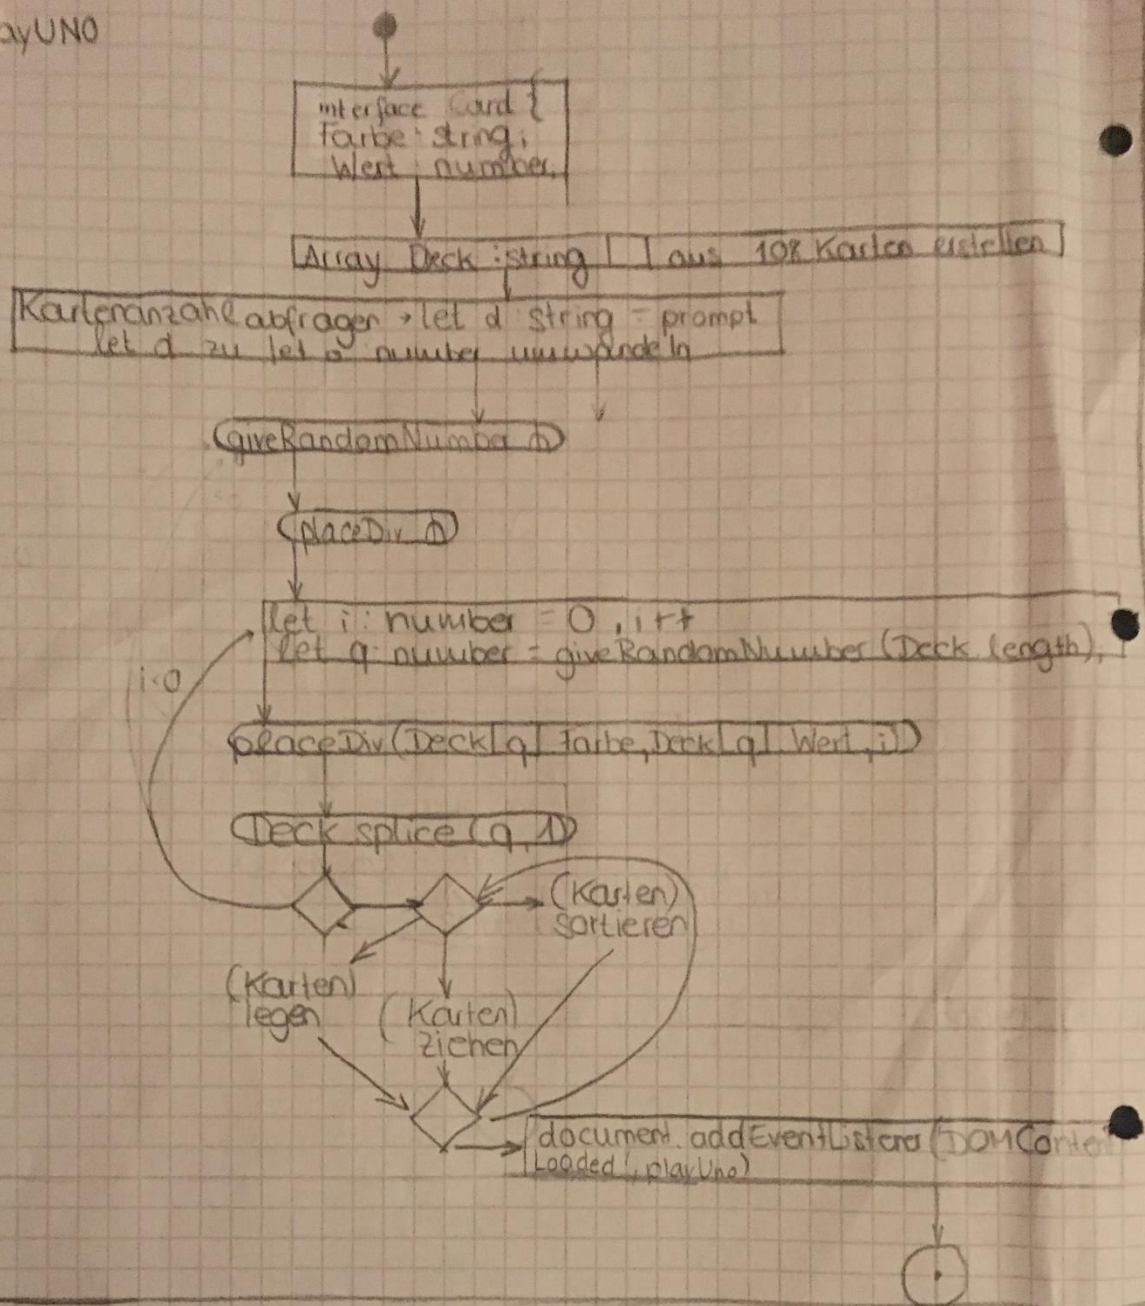 ayUNO
interface Card {
Farbe: string;
Wert: number;
Array Deck: string [ ] aus 108 Karten erstellen
Kartenanzahl abfragen → let d: string = prompt
let d zu let o: number umwandeln
giveRandomNumber ()
placeDiv ()
let i: number = 0, i++
let q: number = giveRandomNumber (Deck.length),
i<o
placeDiv (Deck[q].Farbe, Deck[q].Wert, i)
Deck.splice (q, 1)
(Karten)
sortieren
(Karten)
legen
(Karten)
ziehen
document.addEventListener(DOMConte
Loaded', playUno)